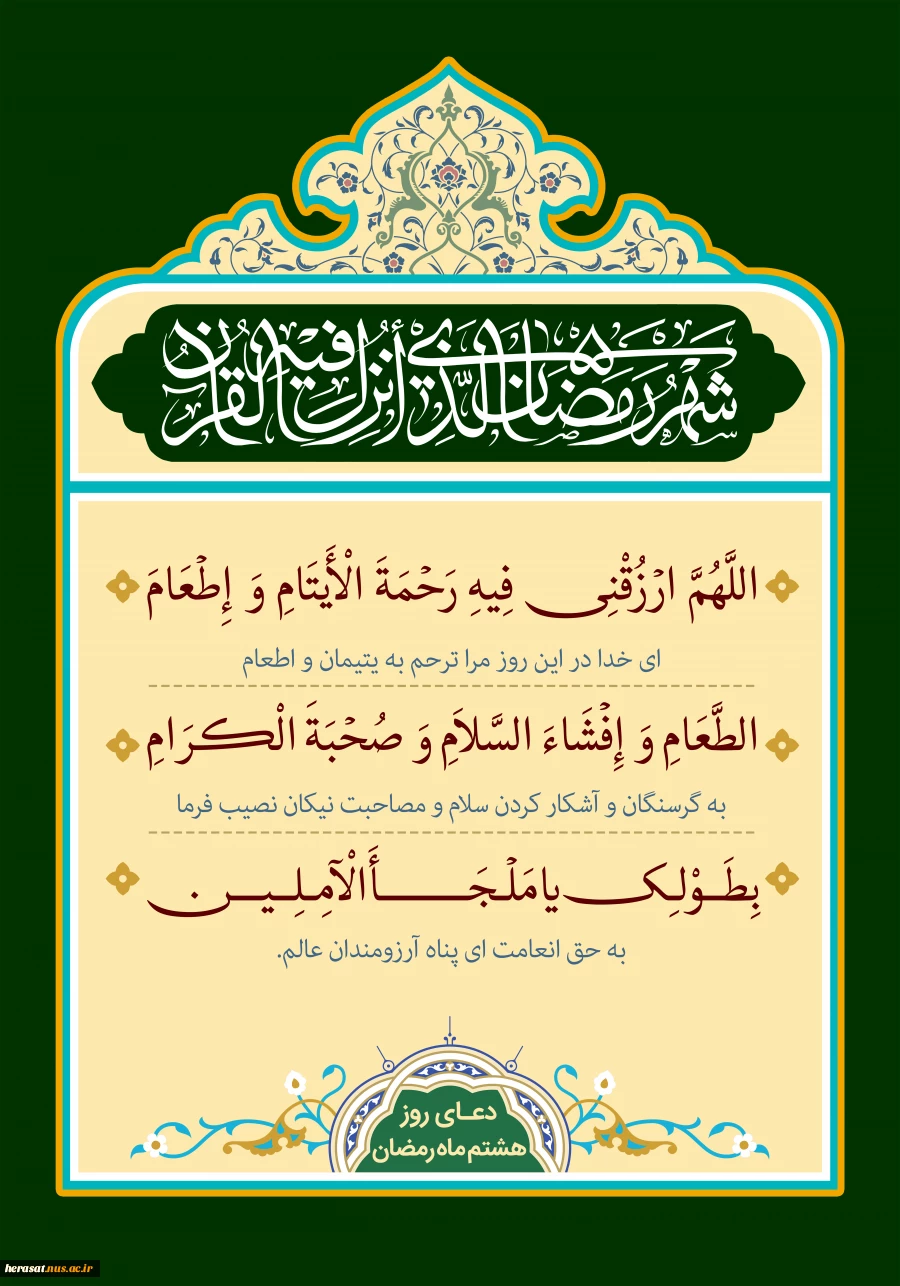 شَهْرُ رَمَضَانَ الَّذِي أُنْزِلَ فِيهِ الْقُرْآنُ
اللَّهُمَّ ارْزُقْنِی فِيهِ رَحْمَةَ الْأَيْتَامِ وَ إِطْعَامَ
ای خدا در این روز مرا ترحم به یتیمان و اطعام
الطَّعَامِ وَ إِفْشَاءَ السَّلاَمِ وَ صُحْبَةَ الْکَرَامِ
به گرسنگان و آشکار کردن سلام و مصاحبت نیکان نصیب فرما
بِطَوْلِکَ یا مَلْجَأَ الْآمِلِینَ
به حق انعامت ای پناه آرزومندان عالم.
دعای روز
هشتم ماه رمضان
herasat.nus.ac.ir